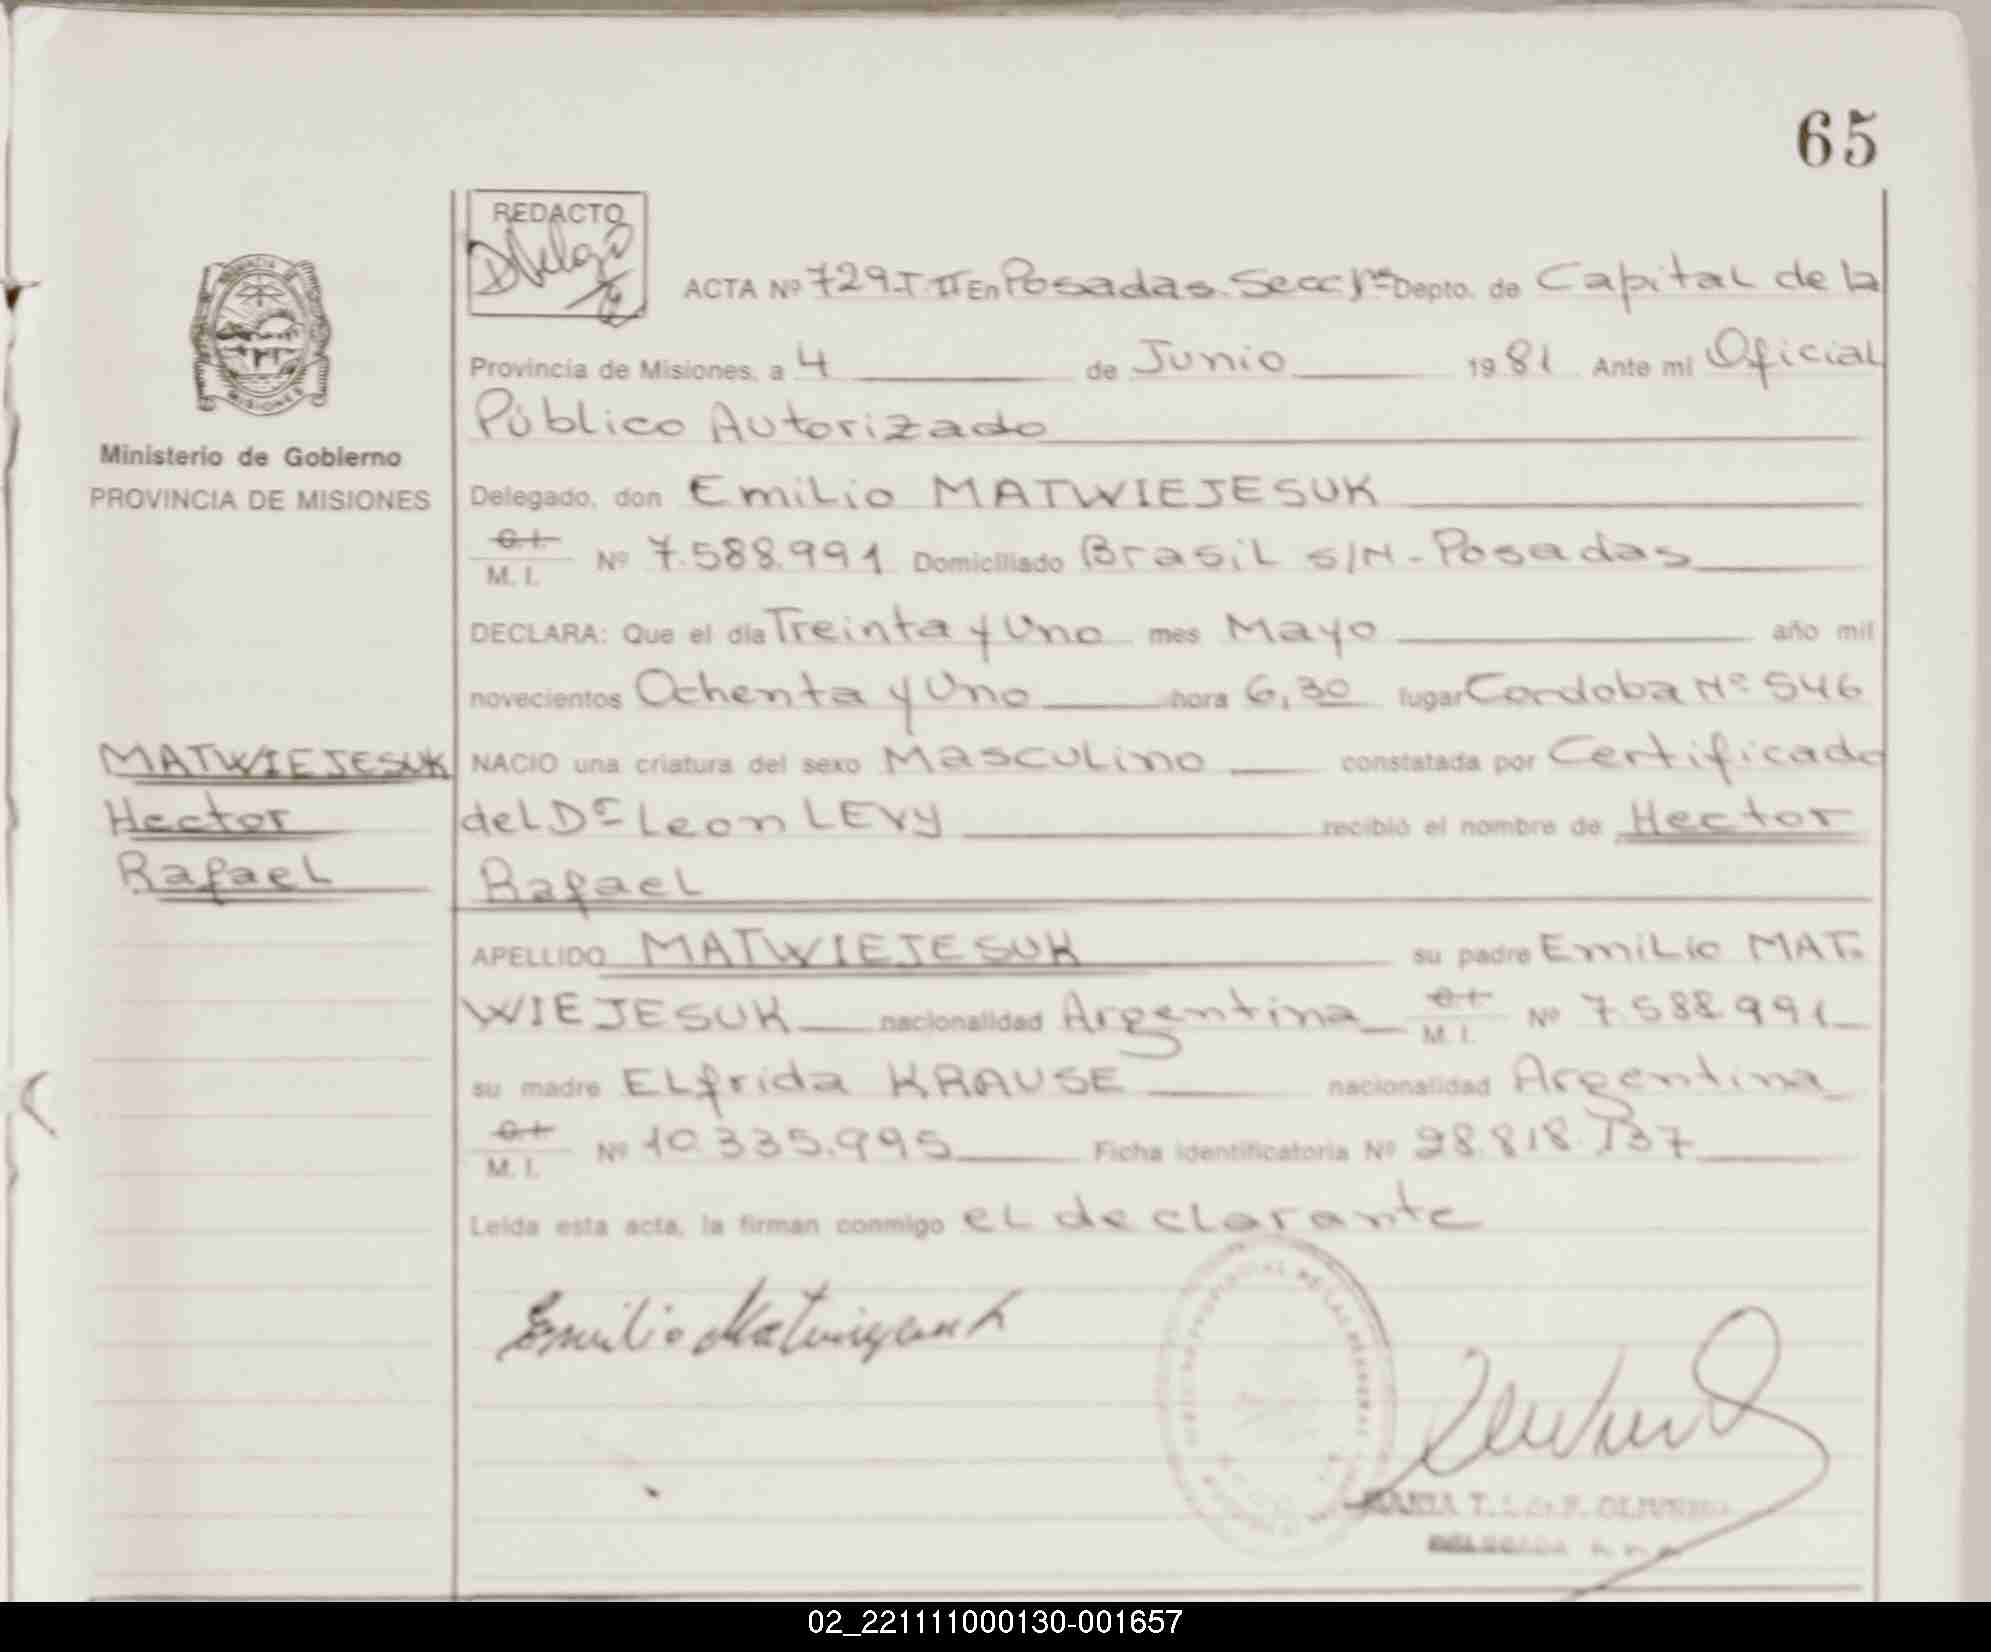 65
REDACTO
ACTA Nº 729-T II En Posadas. Secc 1ra Depto. de Capital de la
Provincia de Misiones, a 4 de Junio 1981 Ante mi Oficial
Público Autorizado
Ministerio de Gobierno
PROVINCIA DE MISIONES
Delegado, don Emilio MATWIEJESUK
C.I. M. I. Nº 7.588.991 Domiciliado Brasil s/N - Posadas
DECLARA: Que el día Treinta y Uno mes Mayo año mil
novecientos Ochenta y Uno hora 6,30 lugar Cordoba Nº 546
MATWIEJESUK
Hector
Rafael
NACIO una criatura del sexo Masculino constatada por Certificado
del Dr Leon LEVY recibió el nombre de Hector
Rafael
APELLIDO MATWIEJESUK su padre Emilio MAT-
WIEJESUK nacionalidad Argentina C.I. M. I. Nº 7.588.991
su madre Elfrida KRAUSE nacionalidad Argentina
C.I. M. I. Nº 10.335.995 Ficha identificatoria Nº 28.818.137
Leída esta acta, la firman conmigo el declarante
Emilio Matwiejesuk
MARIA T. OLIVEIRA
02_221111000130-001657